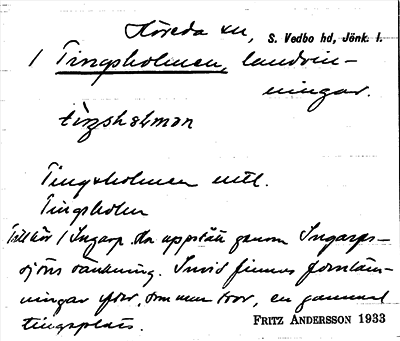 Höreda sn, S. Vedbo hd, Jönk. l.
1 Tingsholmen, landvin-
ningar.
tiŋshɷlmən
Tingsholmen mtl.
Tingsholm
Tillhör 1 Ingarp. Har uppstått genom Ingarps-
sjöns sänkning. Invid finnas fornläm-
ningar efter, som man tror, en gammal
tingsplats.
FRITZ ANDERSSON 1933